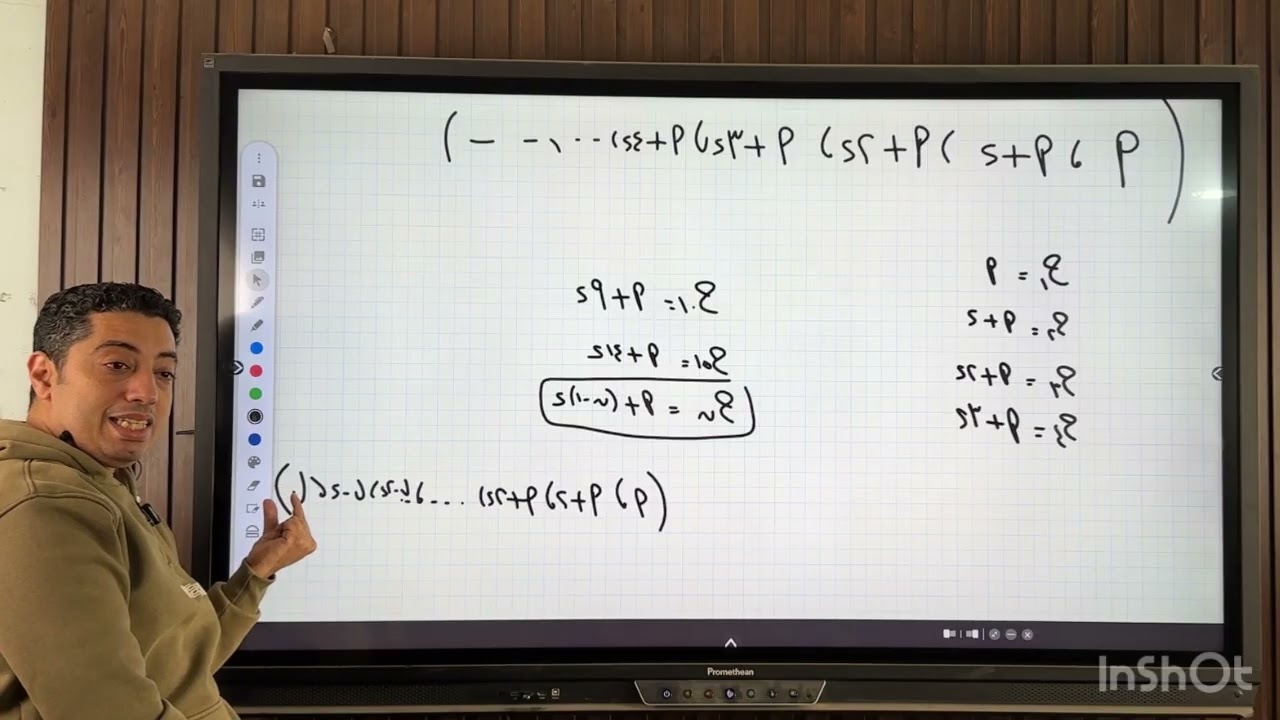 ( أ ، أ + د ، أ + ٢د ، أ + ٣د ، أ + ٤د ، ... - - )
ح١ = أ
ح٢ = أ + د
ح٣ = أ + ٢د
ح٤ = أ + ٣د
ح١٠ = أ + ٩د
ح١٥ = أ + ١٤د
حن = أ + (ن - ١)د
( أ ، أ + د ، أ + ٢د ، ... ، ل - ٢د ، ل - د ، ل )
Promethean
InShOt